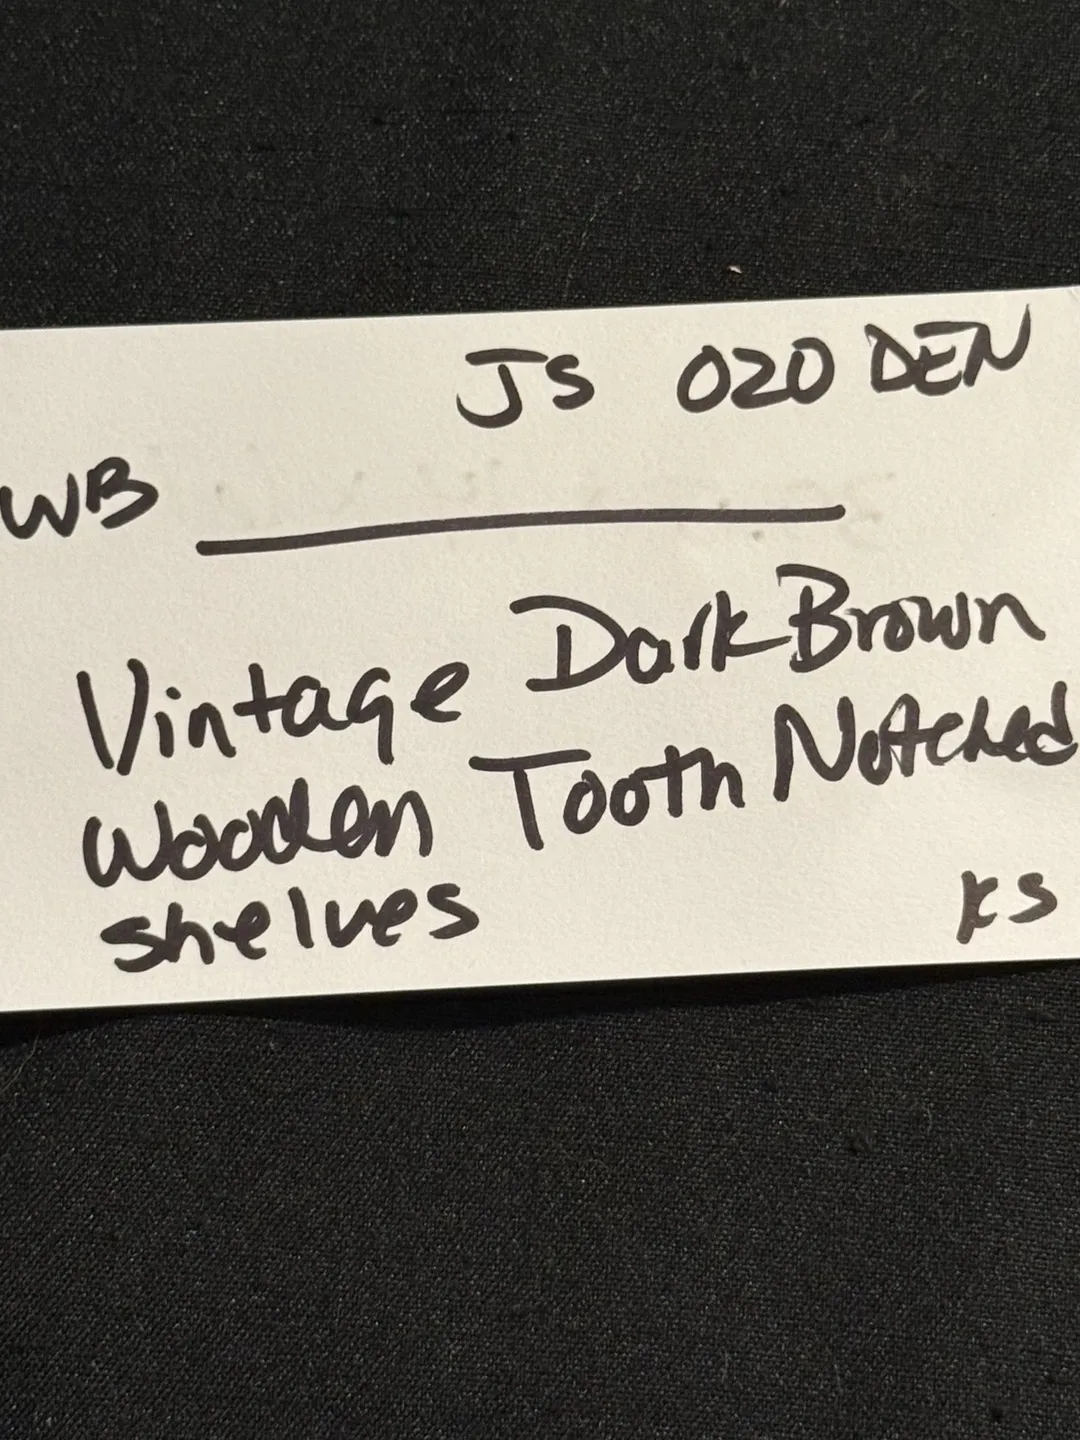 JS 020 DEN
WB
Vintage Dark Brown
Wooden Tooth Notched
shelves
KS